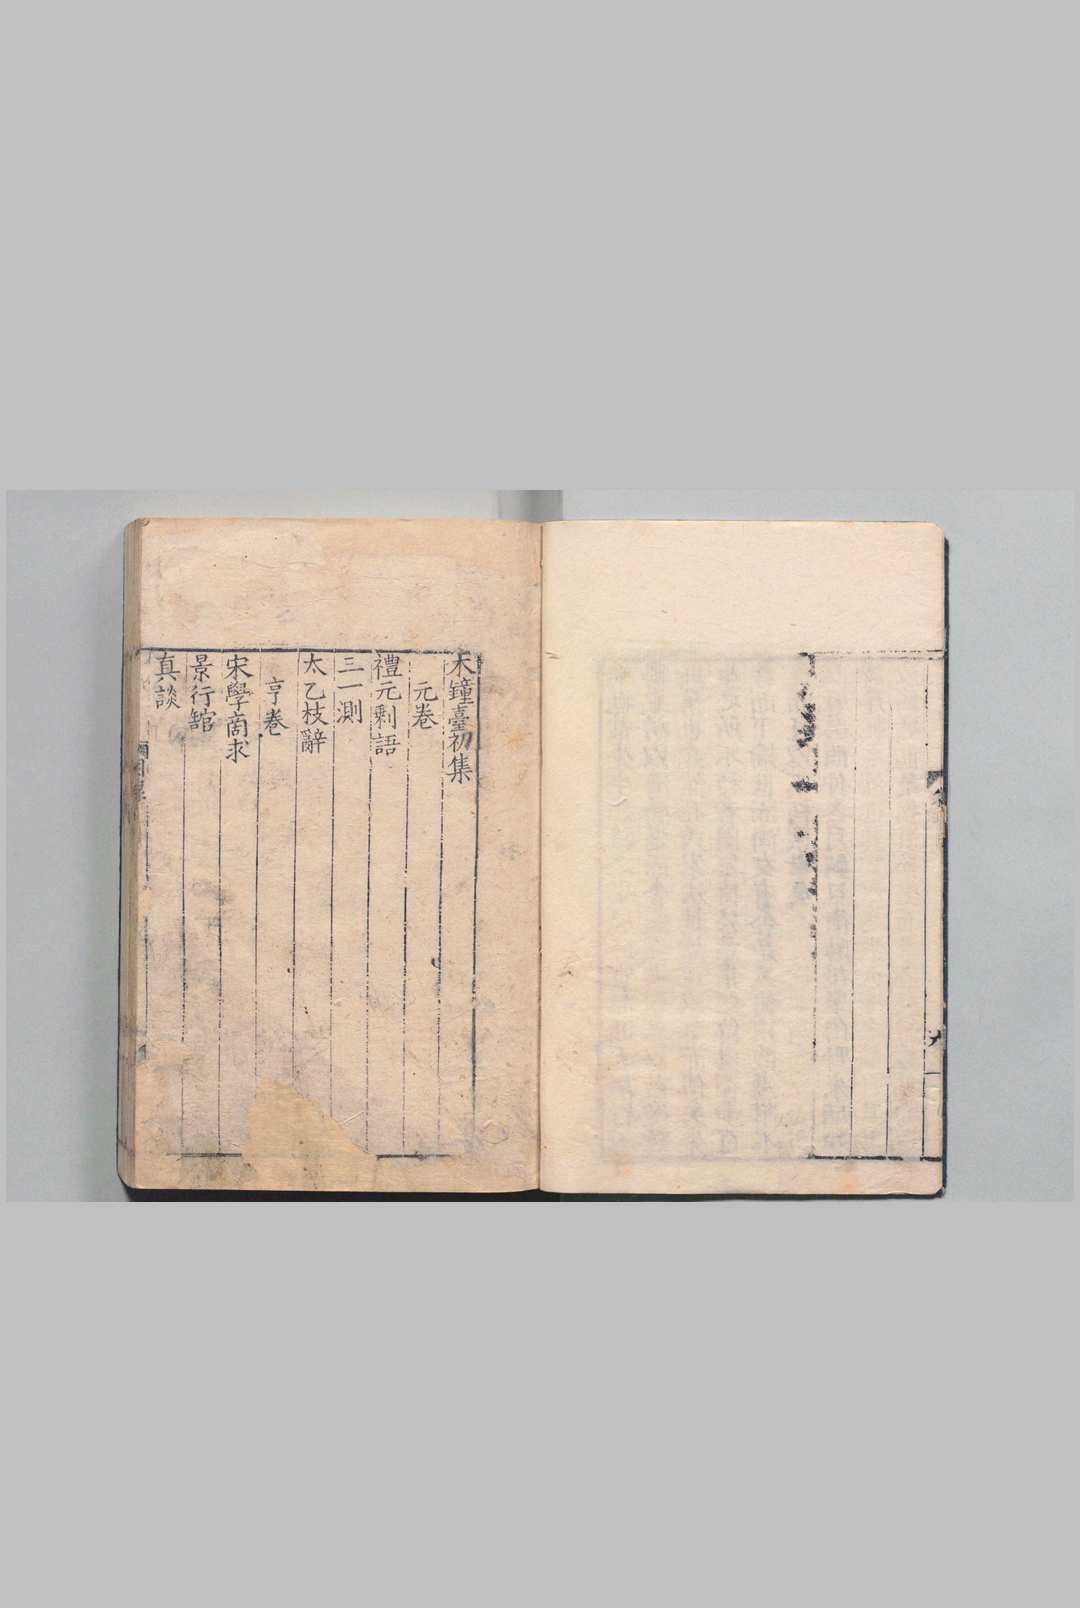 木鐘臺初集
元卷
禮元剩語
三一測
太乙枝辭
亨卷
宋學商求
景行館
真談